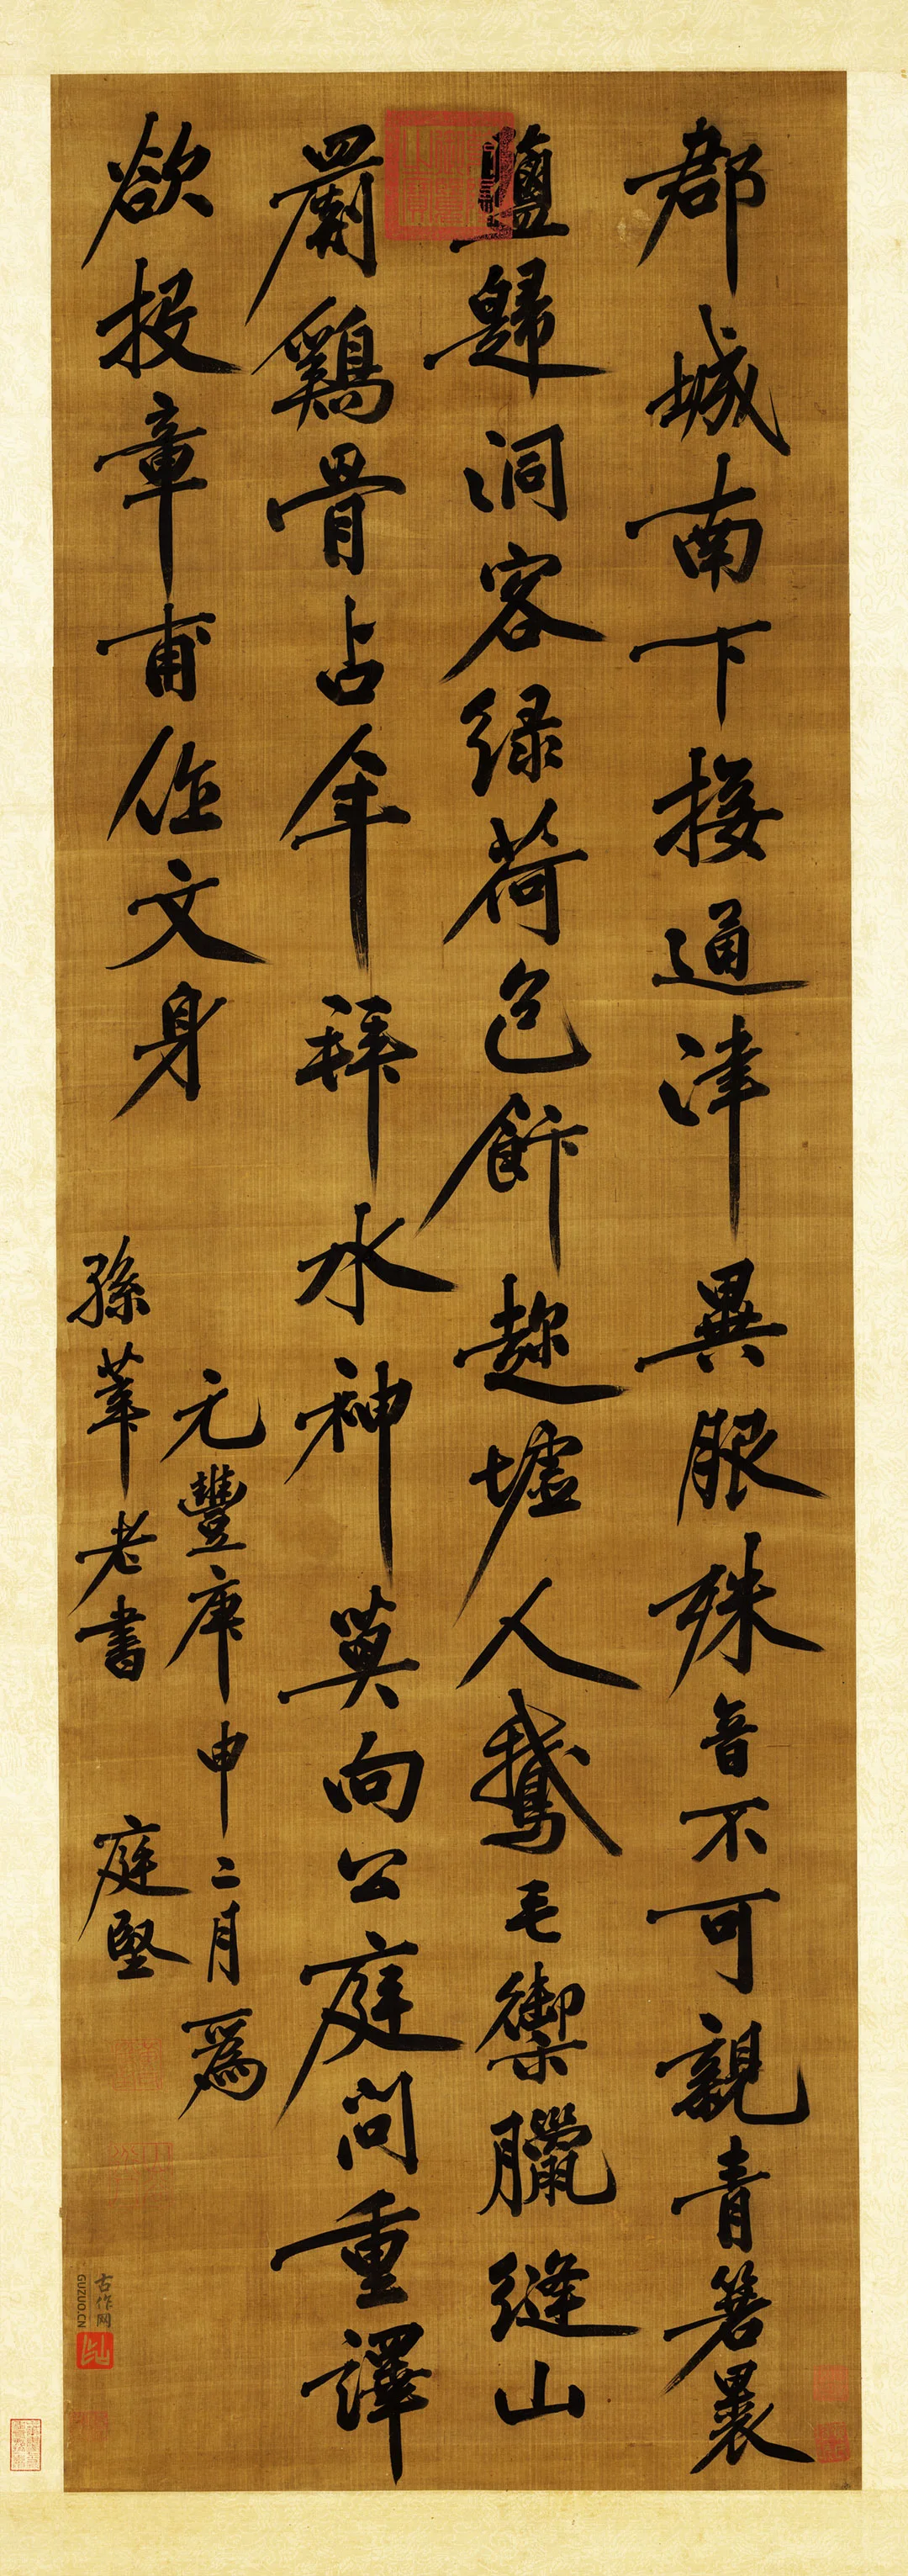 郡城南下接通津異服殊音不可親青箬裹
鹽歸洞客緑荷包飰趂墟人鵝毛禦臘縫山
罽鷄骨占年拜水神莫向公庭問重譯
欲投章甫作文身
元豐庚申二月爲
孫莘老書 庭堅
古作网
GUZUO.CN